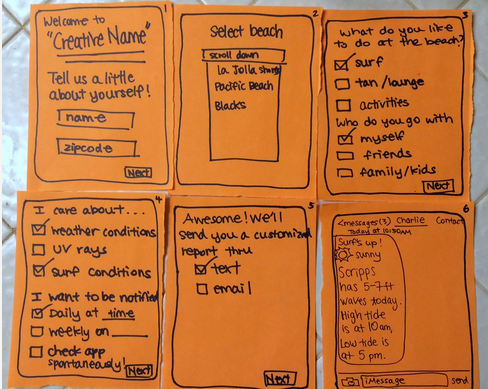 1
Welcome to
"Creative Name"
Tell us a little
about yourself!
name
zipcode
Next
2
Select beach
scroll down
La Jolla Shores
Pacific Beach
Blacks
3
What do you like
to do at the beach?
surf
tan/lounge
activities
Who do you go with
myself
friends
family/kids
Next
4
I care about...
weather conditions
UV rays
surf conditions
I want to be notified
Daily at time
weekly on
check app
spontaneously!
Next
5
Awesome! We'll
send you a customized
report thru
text
email
Next
6
<messages(3) Charlie Contact
Today at 10:30AM
Surf's up!
sunny
Scripps
has 5-7ft
waves today.
High tide
is at 10am,
Low tide is
at 5 pm.
iMessage send